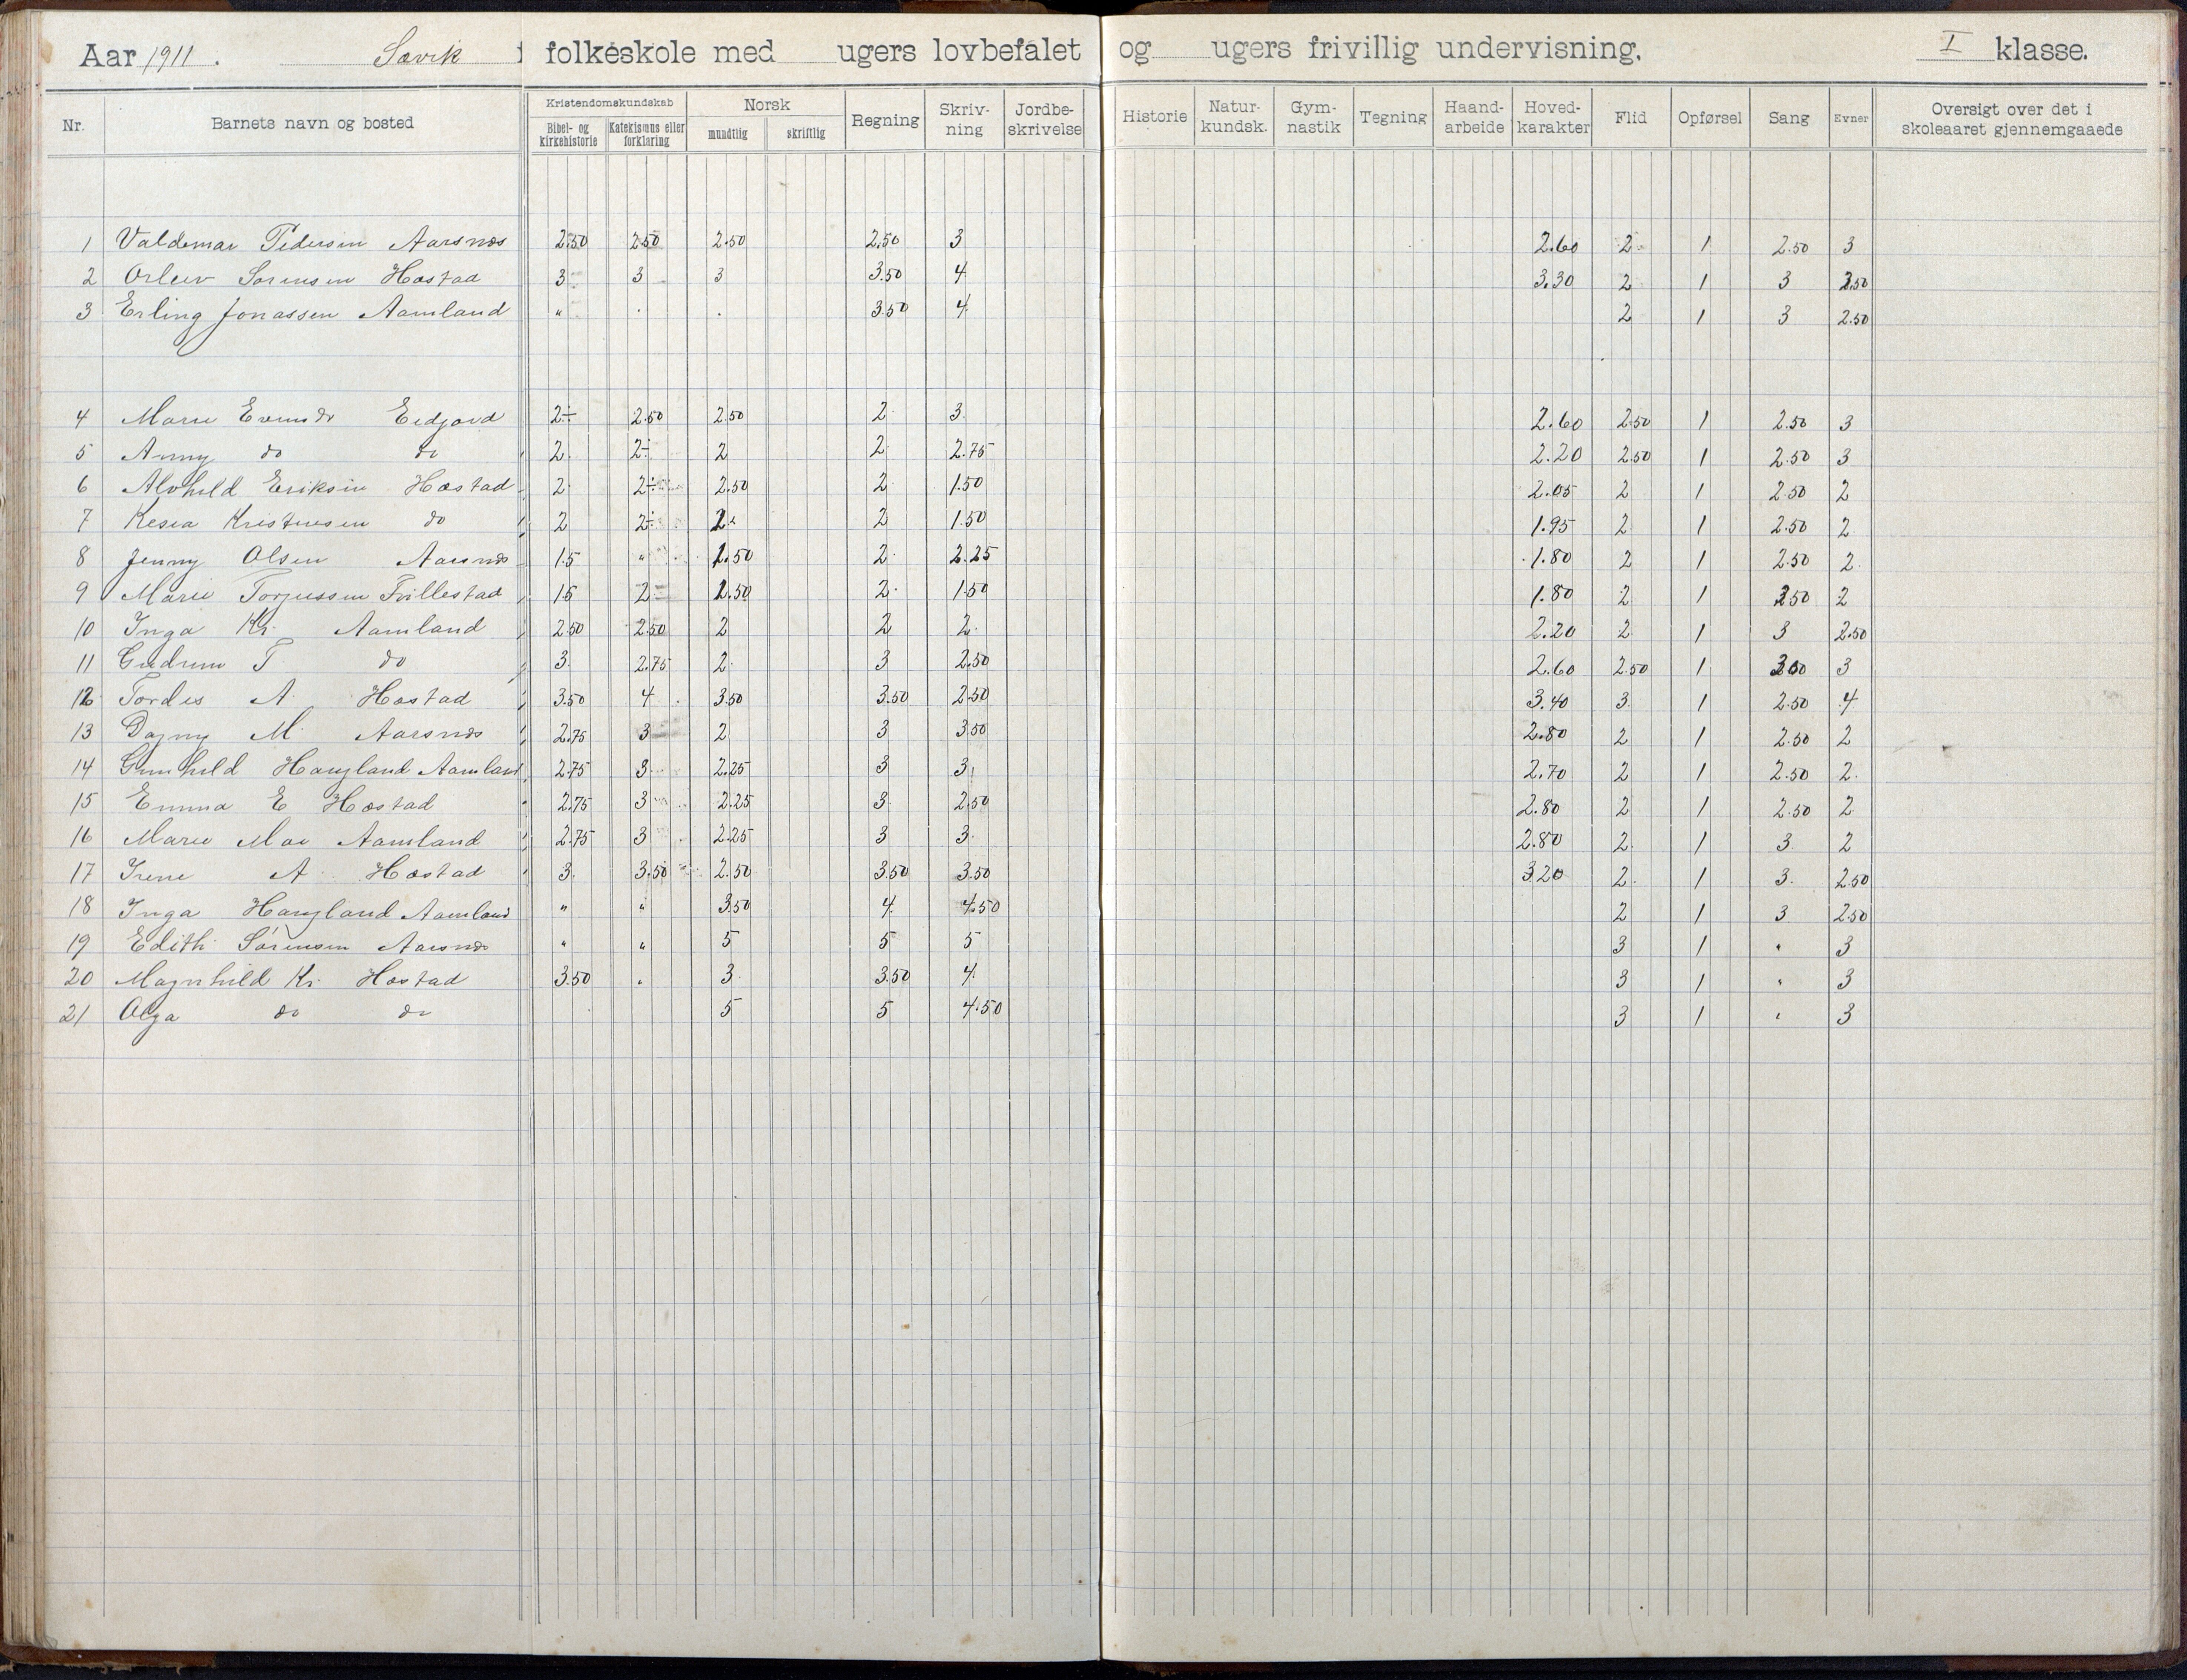 Aar 1911. Søvik folkeskole med ugers lovbefalet og ugers frivillig undervisning. I klasse.
Nr. Barnets navn og bosted Kristendomskundskab Bibel- og kirkehistorie Katekismus eller forklaring Norsk mundtlig skriftlig Regning Skriv-ning Jordbe-skrivelse Historie Natur-kundsk. Gym-nastik Tegning Haand-arbeide Hoved-karakter Flid Opførsel Sang Evner Oversigt over det i skoleaaret gjennemgaaede
1 Valdemar Pedersen Aarsnes 2.50 2.50 2.50 2.50 3 2.60 2 1 2.50 3
2 Orleiv Sørensen Hæstad 3 3 3 3.50 4 3.30 2 1 3 2.50
3 Erling Jonassen Aamland " . . 3.50 4 2 1 3 2.50
4 Marie Eidjord 2÷ 2.50 2.50 2 3 2.60 2.50 1 2.50 3
5 Anny do do 2 2÷ 2 2 2.75 2.20 2.50 1 2.50 3
6 Alvhild Eriksen Hæstad 2 2÷ 2.50 2 1.50 2.05 2 1 2.50 2
7 Kesia Kristensen do 2 2÷ 2 2 1.50 1.95 2 1 2.50 2
8 Jenny Olsen Aarsnes 1.5 " 1.50 2 2.25 1.80 2 1 2.50 2
9 Marie Torjussen 1.5 2 1.50 2 1.50 1.80 2 1 2.50 2
10 Inga Kr. Aamland 2.50 2.50 2 2 2 2.20 2 1 3 2.50
11 Gudrun T do 3 2.75 2 3 2.50 2.60 2.50 1 3.00 3
12 Tordis A Hæstad 3.50 4 3.50 3.50 2.50 3.40 3 1 2.50 4
13 Dagny M. Aarsnes 2.75 3 2 3 3.50 2.80 2 1 2.50 2
14 Gunhild Haugland Aamland 2.75 3 2.25 3 3 2.70 2 1 2.50 2
15 Emma E Hæstad 2.75 3 2.25 3 2.50 2.80 2 1 2.50 2
16 Marie Moe Aamland 2.75 3 2.25 3 3 2.80 2 1 3 2
17 Irene A Hæstad 3 3.50 2.50 3.50 3.50 3.20 2 1 3 2.50
18 Inga Haugland Aamland " " 3.50 4 4.50 2 1 3 2.50
19 Edith Sørensen Aarsnes " " 5 5 5 3 1 " 3
20 Magnhild Kr. Hæstad 3.50 " 3 3.50 4 3 1 " 3
21 Olga do do 5 5 4.50 3 1 " 3